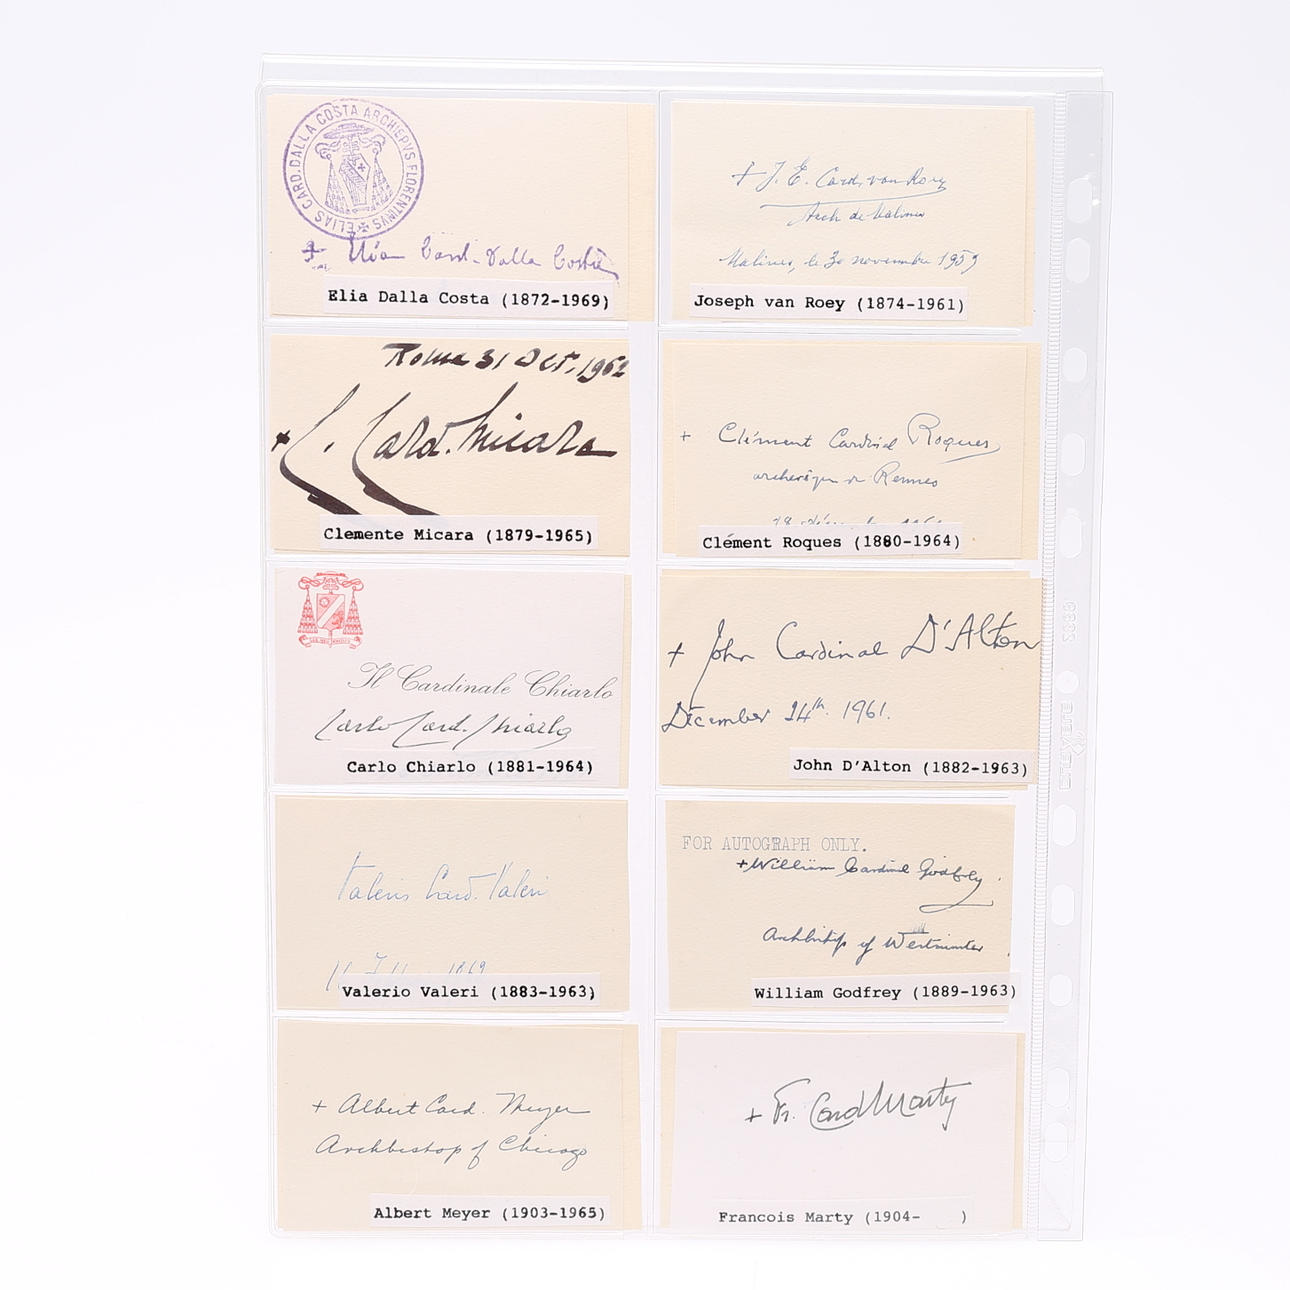 ELIAS CARD. DALLA COSTA ARCHIEPVS FLORENTINVS
+ Elia Card. Dalla Costa
Elia Dalla Costa (1872-1969)
+ J. E. Card. van Roey
Arch de Malines
Malines, le 30 novembre 1959
Joseph van Roey (1874-1961)
Roma 31 Oct. 1962
+ C. Card. Micara
Clemente Micara (1879-1965)
+ Clément Cardinal Roques
archevêque de Rennes
Clément Roques (1880-1964)
Il Cardinale Chiarlo
Carlo Card. Chiarlo
Carlo Chiarlo (1881-1964)
+ John Cardinal D'Alton
December 14th 1961.
John D'Alton (1882-1963)
Valerio Card. Valeri
Valerio Valeri (1883-1963)
FOR AUTOGRAPH ONLY.
+ William Cardinal Godfrey.
Archbishop of Westminster
William Godfrey (1889-1963)
+ Albert Card. Meyer
Archbishop of Chicago
Albert Meyer (1903-1965)
+ Fr. Card Marty
Francois Marty (1904-    )